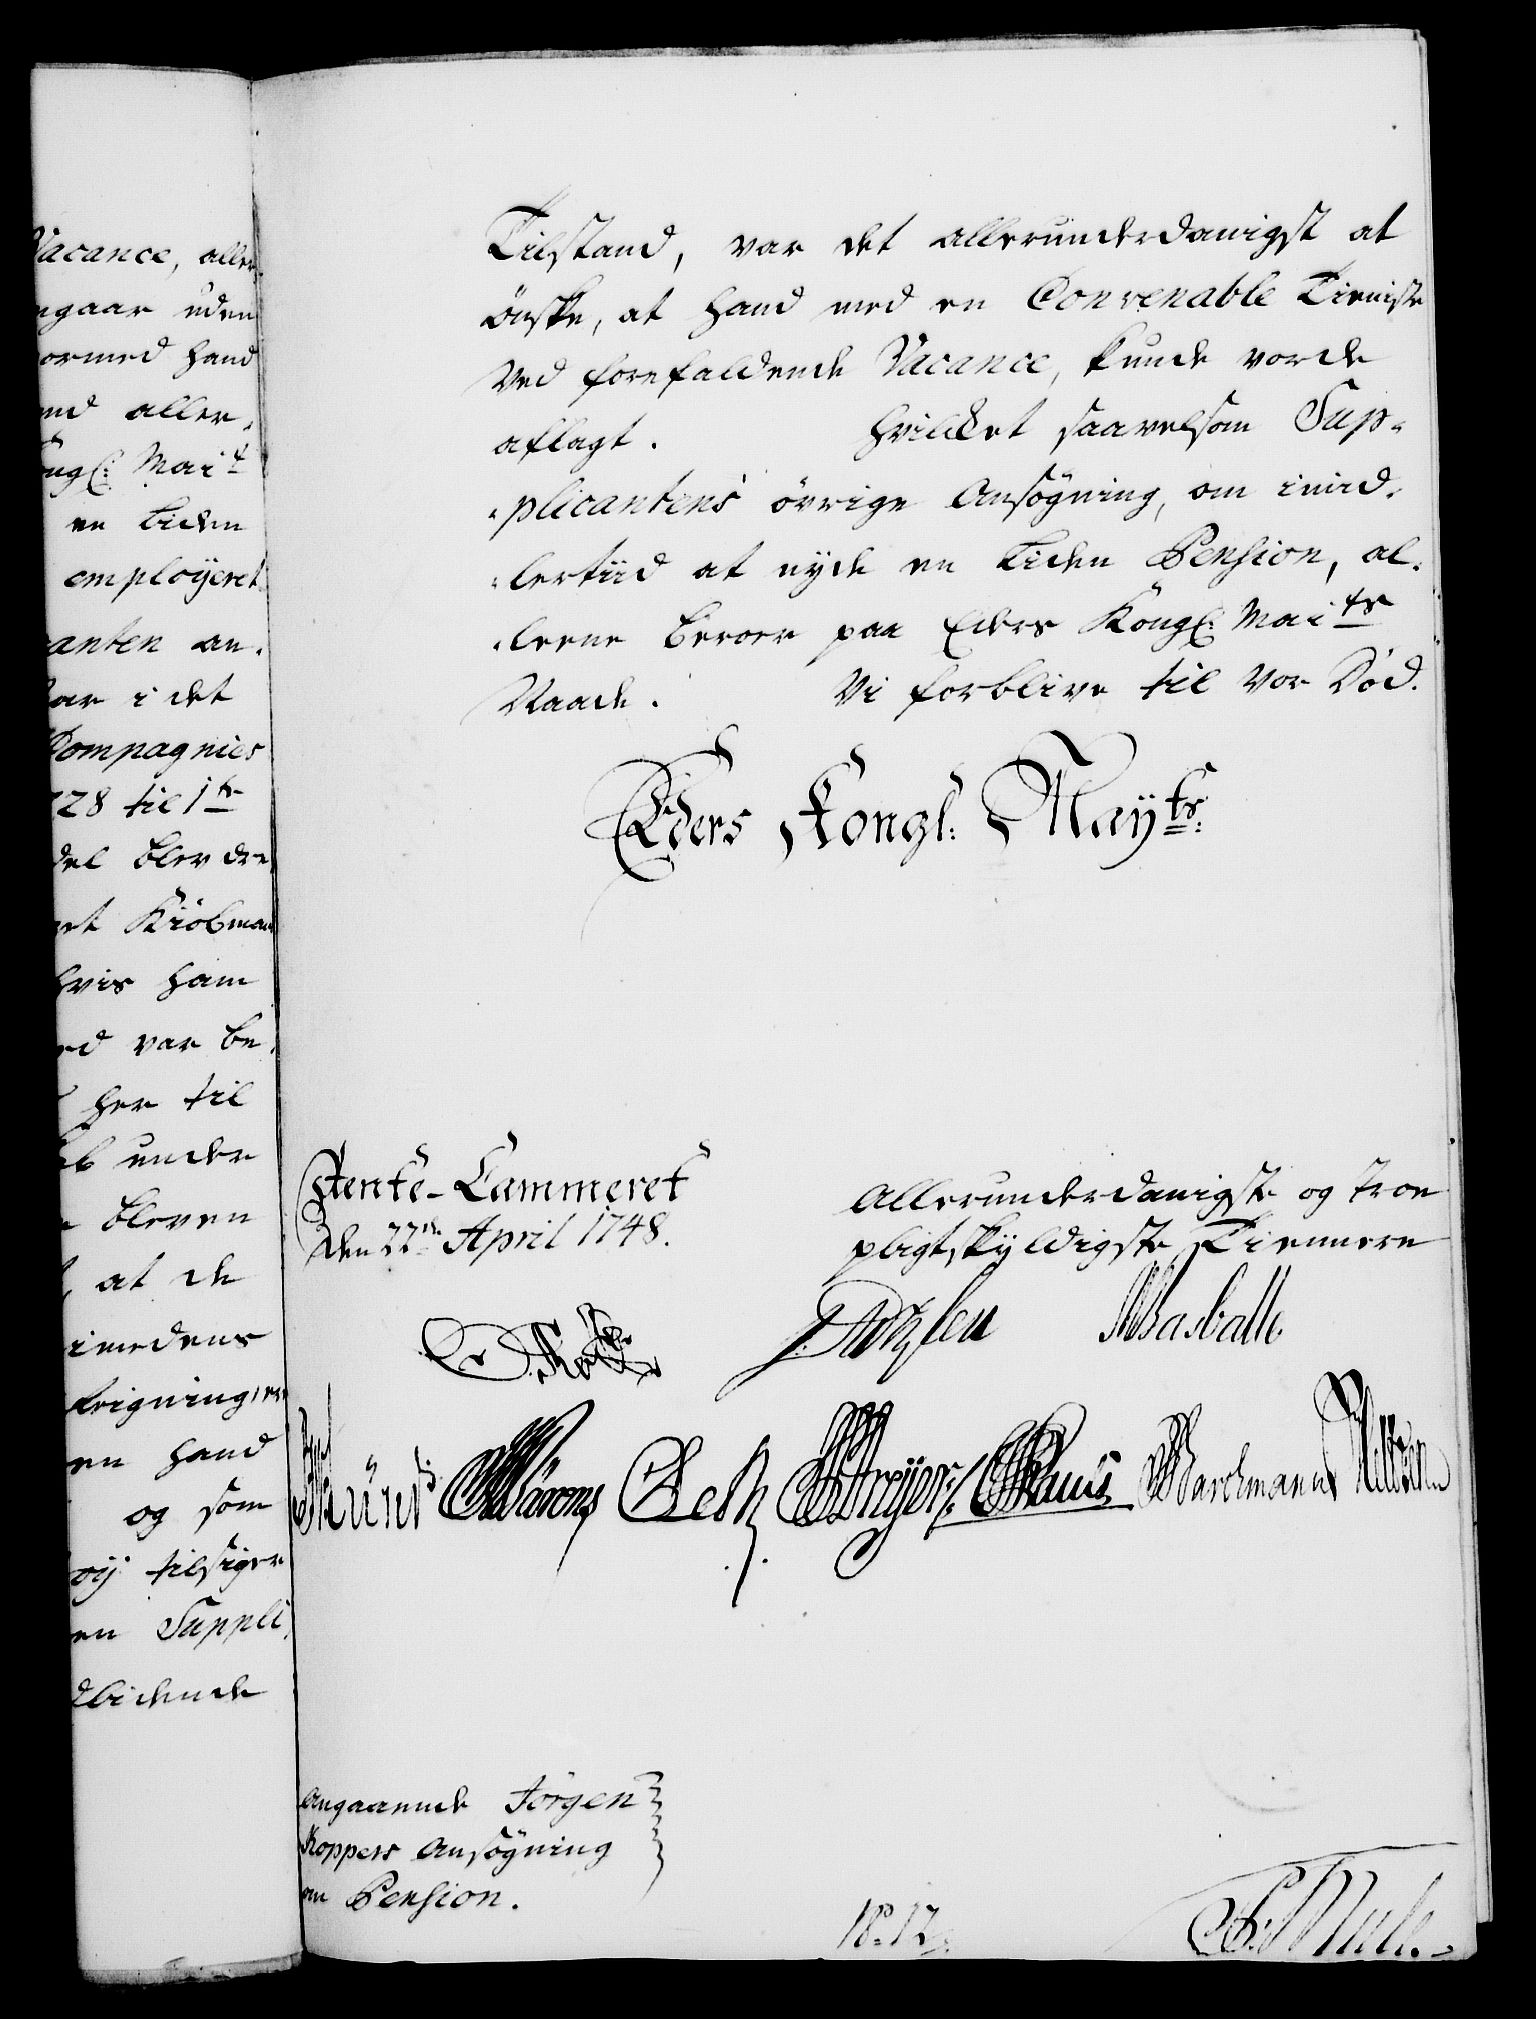 Vacance, aller,
ngaar uden
ormed hand
end aller,
ongl: Mait
en Liden
employeret
anten an,
har i det
Compagnies
728 til 1ste
del blev de
et Kiöbman
hvis ham
ed var be,
her til
under
bleven
, at de
imedens
krigning
en hand
og som
oy tilsiger
en Suppli,
dbidende
Tilstand, var det allerunderdanigst at
önske, at hand med en Convenable Tieniste
Ved forefaldende Vacance, kunde vorde
aflagt. Hvilcket saavelsom Sup,
,plicantens övrige Ansögning, om imid,
,lertiid at nyde en Liden Pension, al,
,leene beroer paa Eders Kongl: Maits
Naade. Vi forblive til Vor Död.
Eders Kongl: Mayts:
Rente-Cammeret
den 22de April 1748.
Allerunderdanigste og troe
pligtskyldigste Tiennere
Angaaende Jörgen
Koppers Ansögning
om Pension.